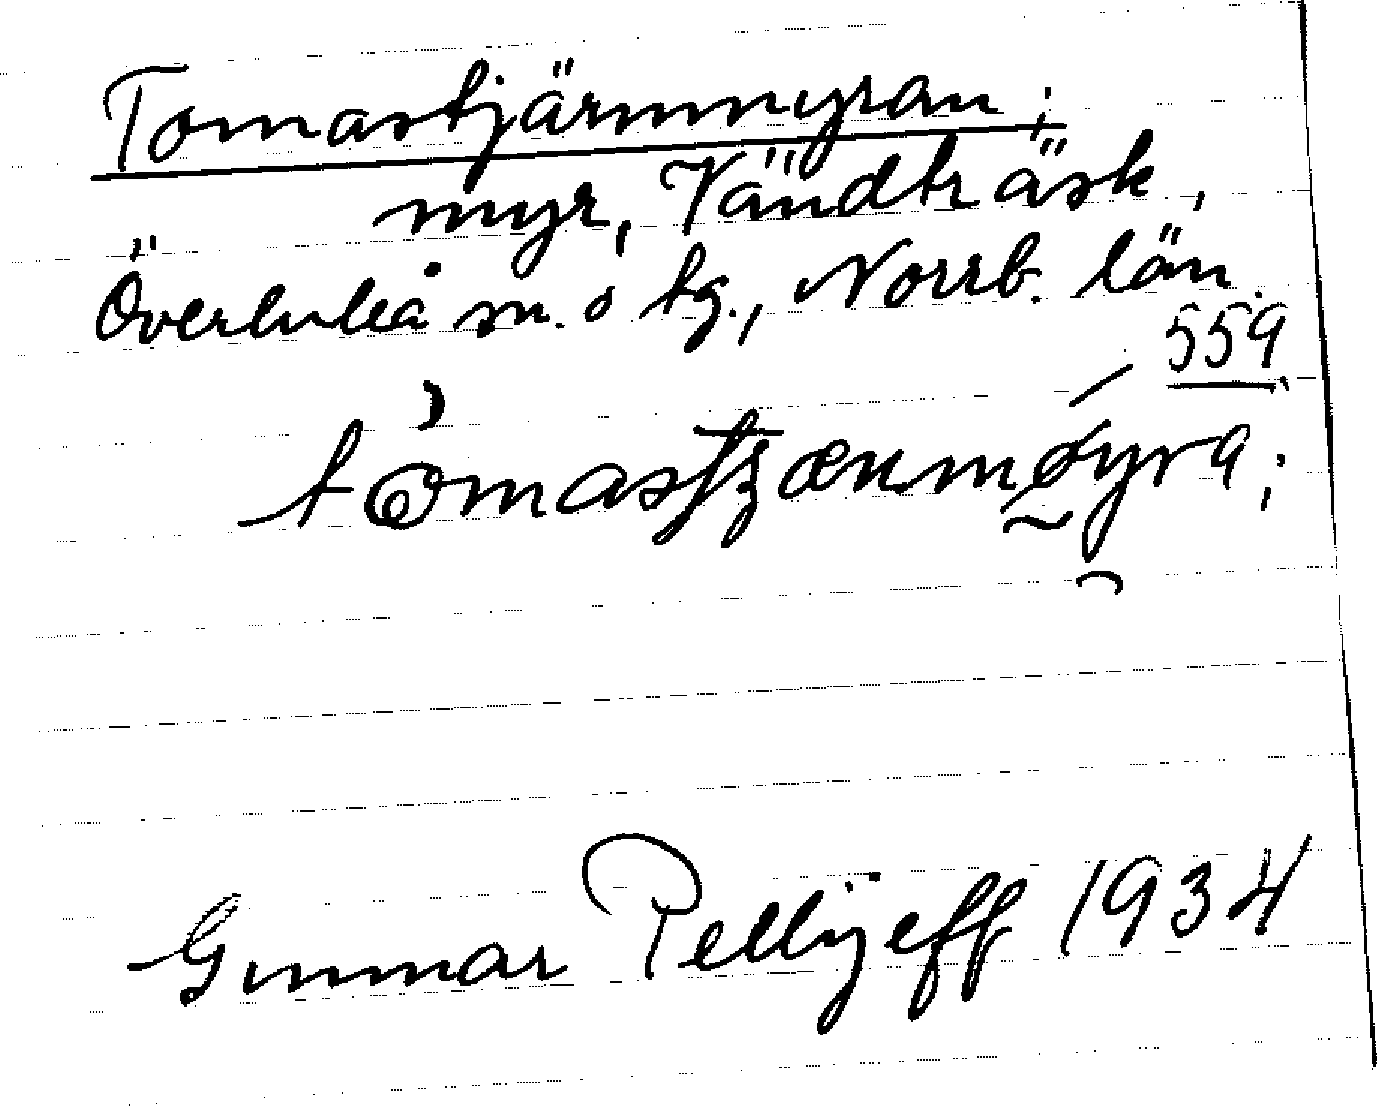 Tomastjärnmyran;
myr, Vändträsk,
Överluleå sn. o tg., Norrb. län.
559
tòmastʒænmøyra;
Gunnar Pellijeff 1934